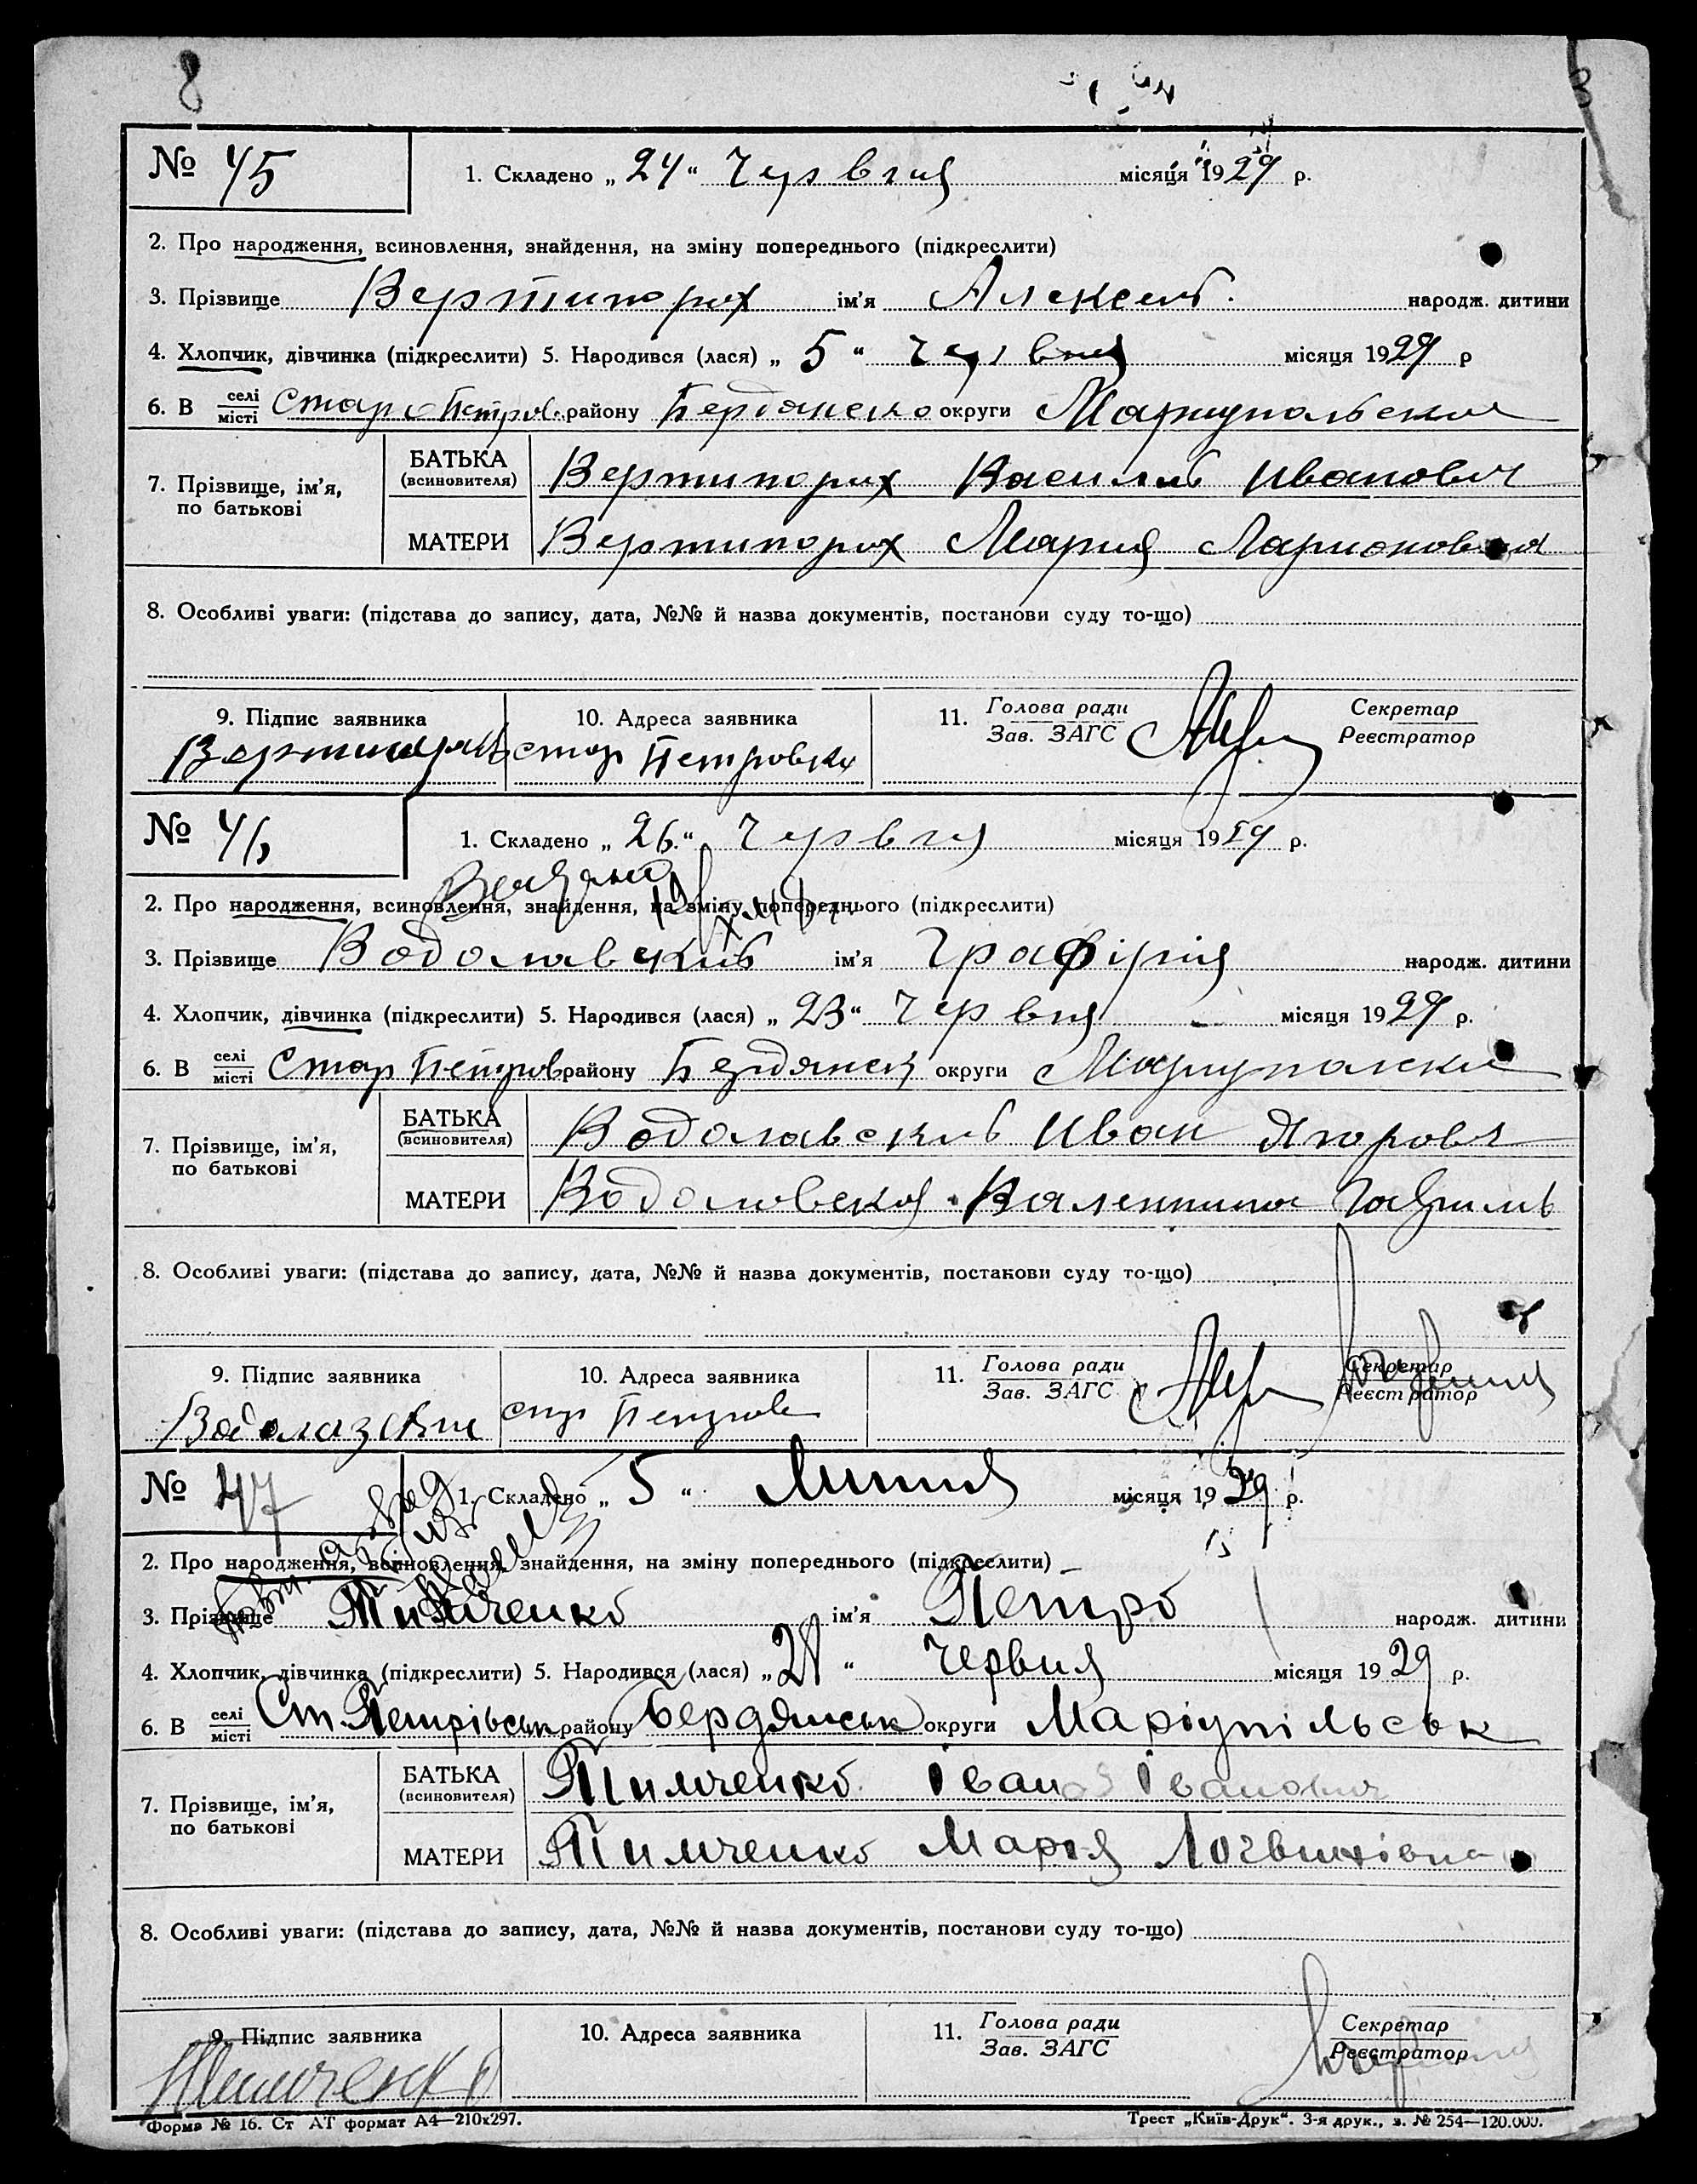 8
№ 45 1. Складено „ 24 “ Червня місяця 1929 р.
2. Про народження, всиновлення, знайдення, на зміну попереднього (підкреслити)
3. Прізвище Вертипорох ім'я Алексей народж. дитини
4. Хлопчик, дівчинка (підкреслити) 5. Народився (лася) „ 5 “ червня місяця 1929 р
6. В селі місті Стар Петров. району Бердянско округи Мариупольской
7. Прізвище, ім'я, по батькові
БАТЬКА (всиновителя) Вертипорох Василий Иванович
МАТЕРИ Вертипорох Мария Ларионовна
8. Особливі уваги: (підстава до запису, дата, №№ й назва документів, постанови суду то-що)
9. Підпис заявника 10. Адреса заявника 11. Голова ради Зав. ЗАГС Секретар Реєстратор
Стар Петровка
№ 46 1. Складено „ 26. “ Червня місяця 1929 р.
2. Про народження, всиновлення, знайдення, на зміну попереднього (підкреслити)
3. Прізвище Водолавский ім'я народж. дитини
4. Хлопчик, дівчинка (підкреслити) 5. Народився (лася) „ 23 “ Червня місяця 1929 р.
6. В селі місті Стар Петров району Бердянск округи Мариуполской
7. Прізвище, ім'я, по батькові
БАТЬКА (всиновителя) Водолавский Иван
МАТЕРИ Водоловская Валентина
8. Особливі уваги: (підстава до запису, дата, №№ й назва документів, постанови суду то-що)
9. Підпис заявника 10. Адреса заявника 11. Голова ради Зав. ЗАГС Секретар Реєстратор
стар Петровк
№ 47 1. Складено „ 5 “ Липня місяця 1929 р.
2. Про народження, всиновлення, знайдення, на зміну попереднього (підкреслити)
3. Прізвище Тимченко ім'я Петро народж. дитини
4. Хлопчик, дівчинка (підкреслити) 5. Народився (лася) „ “ Червня місяця 1929 р.
6. В селі місті Ст. Петрівськ району Бердянськ округи Маріупільськ
7. Прізвище, ім'я, по батькові
БАТЬКА (всиновителя) Тимченко Іван Іванович
МАТЕРИ Тимченко Марія Логвинівна
8. Особливі уваги: (підстава до запису, дата, №№ й назва документів, постанови суду то-що)
9. Підпис заявника 10. Адреса заявника 11. Голова ради Зав. ЗАГС Секретар Реєстратор
Тимченко
Форма № 16. Ст АТ формат А4—210х297. Трест „Київ-Друк“. 3-я друк., з. № 254—120.000.